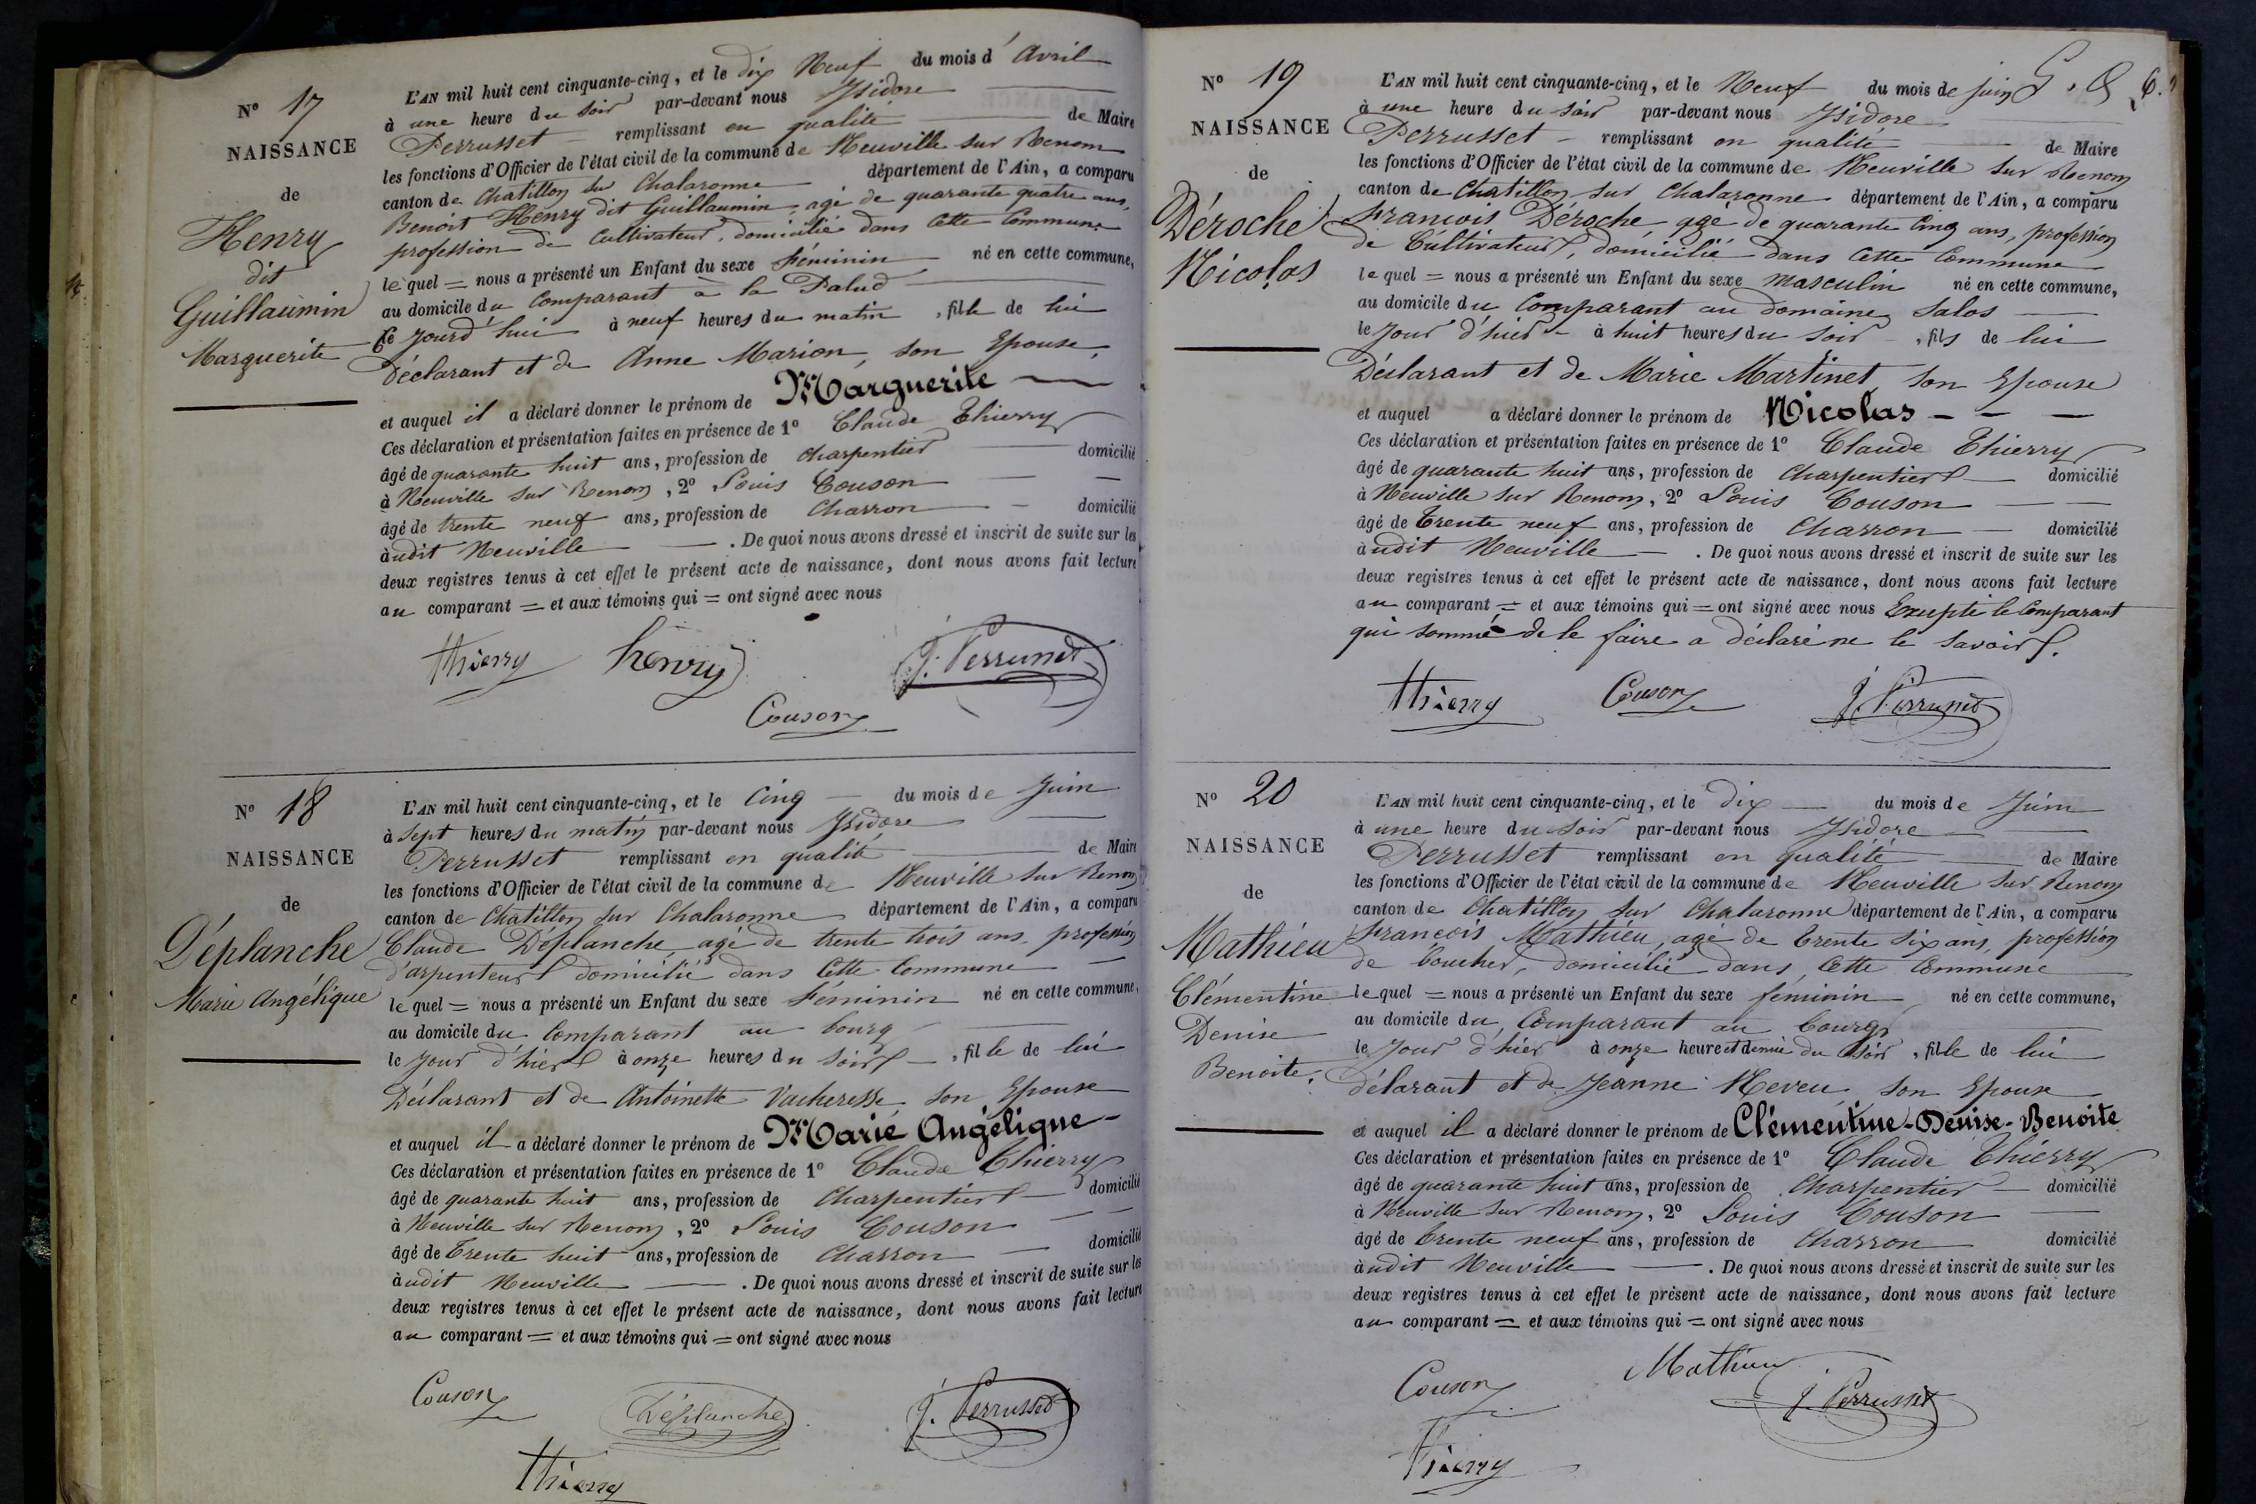 N° 17
NAISSANCE
de
Henry
dit
Guillaumin
Marguerite
L'AN mil huit cent cinquante-cinq, et le dix Neuf du mois d'Avril
à une heure du soir par-devant nous Ysidore
Perrusset remplissant en qualité de Maire
les fonctions d'Officier de l'état civil de la commune de Neuville sur Renom
canton de Chatillon sur Chalaronne département de l'Ain, a comparu
Benoit Henry dit Guillaumin, agé de quarante quatre ans,
profession de Cultivateur, domicilié dans cette Commune
lequel = nous a présenté un Enfant du sexe féminin né en cette commune,
au domicile du Comparant à la Palud
Ce Jourd'hui à neuf heures du matin, fille de lui
Déclarant et de Anne Marion, son Epouse,
et auquel il a déclaré donner le prénom de Marguerite
Ces déclaration et présentation faites en présence de 1° Claude Thierry
âgé de quarante huit ans, profession de Charpentier domicilié
à Neuville sur Renom, 2° Louis Couson
âgé de trente neuf ans, profession de Charron domicilié
audit Neuville. De quoi nous avons dressé et inscrit de suite sur les
deux registres tenus à cet effet le présent acte de naissance, dont nous avons fait lecture
au comparant = et aux témoins qui = ont signé avec nous
Thierry henry J. Perrusset
Couson
N° 18
NAISSANCE
de
Déplanche
Marie Angélique
L'AN mil huit cent cinquante-cinq, et le Cinq du mois de Juin
à sept heures du matin par-devant nous Ysidore
Perrusset remplissant en qualité de Maire
les fonctions d'Officier de l'état civil de la commune de Neuville sur Renom
canton de Chatillon sur Chalaronne département de l'Ain, a comparu
Claude Déplanche agé de trente trois ans, profession
d'arpenteur domicilié dans Cette Commune
lequel = nous a présenté un Enfant du sexe féminin né en cette commune,
au domicile du Comparant au bourg
le Jour d'hier à onze heures du soir, fille de lui
Déclarant et de Antoinette Vacheresse, son Epouse
et auquel il a déclaré donner le prénom de Marie Angélique
Ces déclaration et présentation faites en présence de 1° Claude Thierry
âgé de quarante huit ans, profession de Charpentier domicilié
à Neuville sur Renom, 2° Louis Couson
âgé de Trente huit ans, profession de Charron domicilié
audit Neuville. De quoi nous avons dressé et inscrit de suite sur les
deux registres tenus à cet effet le présent acte de naissance, dont nous avons fait lecture
au comparant = et aux témoins qui = ont signé avec nous
Couson Déplanche J. Perrusset
Thierry
N° 19
NAISSANCE
de
Déroche
Nicolas
L'AN mil huit cent cinquante-cinq, et le Neuf du mois de juin
à une heure du soir par-devant nous Ysidore
Perrusset remplissant en qualité de Maire
les fonctions d'Officier de l'état civil de la commune de Neuville sur Renom
canton de Chatillon sur Chalaronne département de l'Ain, a comparu
François Déroche, agé de quarante Cinq ans, profession
de Cultivateur, domicilié dans Cette Commune
lequel = nous a présenté un Enfant du sexe masculin né en cette commune,
au domicile du Comparant au domaine Salos
le Jour d'hier à huit heures du soir, fils de lui
Déclarant et de Marie Martinet, son Epouse
et auquel a déclaré donner le prénom de Nicolas
Ces déclaration et présentation faites en présence de 1° Claude Thierry
âgé de quarante huit ans, profession de Charpentier domicilié
à Neuville sur Renom, 2° Louis Couson
âgé de Trente neuf ans, profession de Charron domicilié
audit Neuville. De quoi nous avons dressé et inscrit de suite sur les
deux registres tenus à cet effet le présent acte de naissance, dont nous avons fait lecture
au comparant = et aux témoins qui = ont signé avec nous Excepté le Comparant
qui sommé de le faire a déclaré ne le savoir.
Thierry Couson J. Perrusset
N° 20
NAISSANCE
de
Mathieu
Clémentine
Denise
Benoite.
L'AN mil huit cent cinquante-cinq, et le dix du mois de Juin
à une heure du soir par-devant nous Ysidore
Perrusset remplissant en qualité de Maire
les fonctions d'Officier de l'état civil de la commune de Neuville sur Renom
canton de Chatillon sur Chalaronne département de l'Ain, a comparu
François Mathieu, agé de trente six ans, profession
de boucher, domicilié dans Cette Commune
lequel = nous a présenté un Enfant du sexe féminin, né en cette commune,
au domicile du Comparant au bourg
le Jour d'hier à onze heure et demie du soir, fille de lui
déclarant et de Jeanne Neveu son Epouse
et auquel il a déclaré donner le prénom de Clémentine-Denise-Benoite
Ces déclaration et présentation faites en présence de 1° Claude Thierry
âgé de quarante huit ans, profession de Charpentier domicilié
à Neuville sur Renom, 2° Louis Couson
âgé de trente neuf ans, profession de Charron domicilié
audit Neuville. De quoi nous avons dressé et inscrit de suite sur les
deux registres tenus à cet effet le présent acte de naissance, dont nous avons fait lecture
au comparant = et aux témoins qui = ont signé avec nous
Couson Mathieu J. Perrusset
Thierry